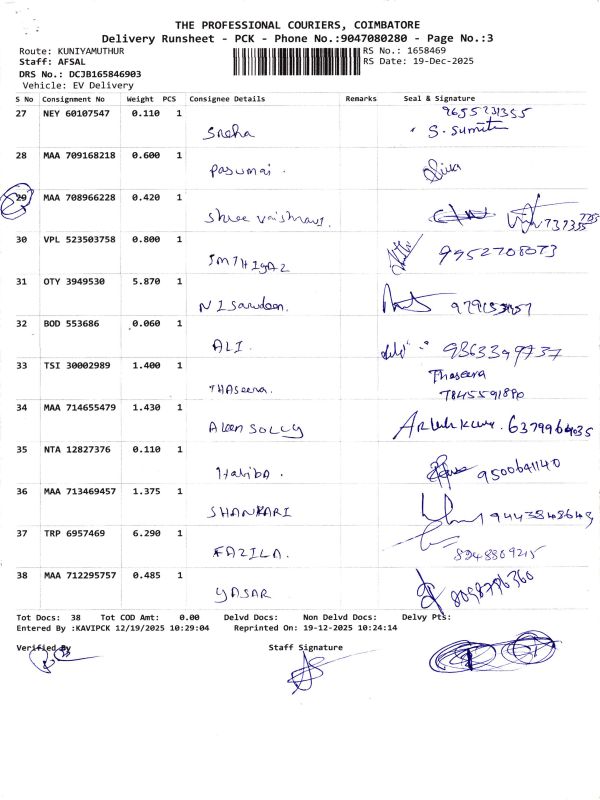 THE PROFESSIONAL COURIERS, COIMBATORE
Delivery Runsheet - PCK - Phone No.:9047080280 - Page No.:3
Route: KUNIYAMUTHUR RS No.: 1658469
Staff: AFSAL RS Date: 19-Dec-2025
DRS No.: DCJB165846903
Vehicle: EV Delivery
S No Consignment No Weight PCS Consignee Details Remarks Seal & Signature
27 NEY 60107547 0.110 1
Sneha S. Sumitra
28 MAA 709168218 0.600 1
Pasumai.
29 MAA 708966228 0.420 1
Shree Vaishnavi.
30 VPL 523503758 0.800 1
IMTHIYAZ 9952708073
31 OTY 3949530 5.870 1
NISarudeen.
32 BOD 553686 0.060 1
ALI. 9363399737
33 TSI 30002989 1.400 1 Thaseera
THASeera. 7845591880
34 MAA 714655479 1.430 1
Aleen SOLLY 6379964035
35 NTA 12827376 0.110 1
Habiba. 9500641140
36 MAA 713469457 1.375 1
SHANKARI 9443848643
37 TRP 6957469 6.290 1
FAZILA.
38 MAA 712295757 0.485 1
YASAR 8098796360
Tot Docs: 38 Tot COD Amt: 0.00 Delvd Docs: Non Delvd Docs: Delvy Pts:
Entered By :KAVIPCK 12/19/2025 10:29:04 Reprinted On: 19-12-2025 10:24:14
Verified By Staff Signature